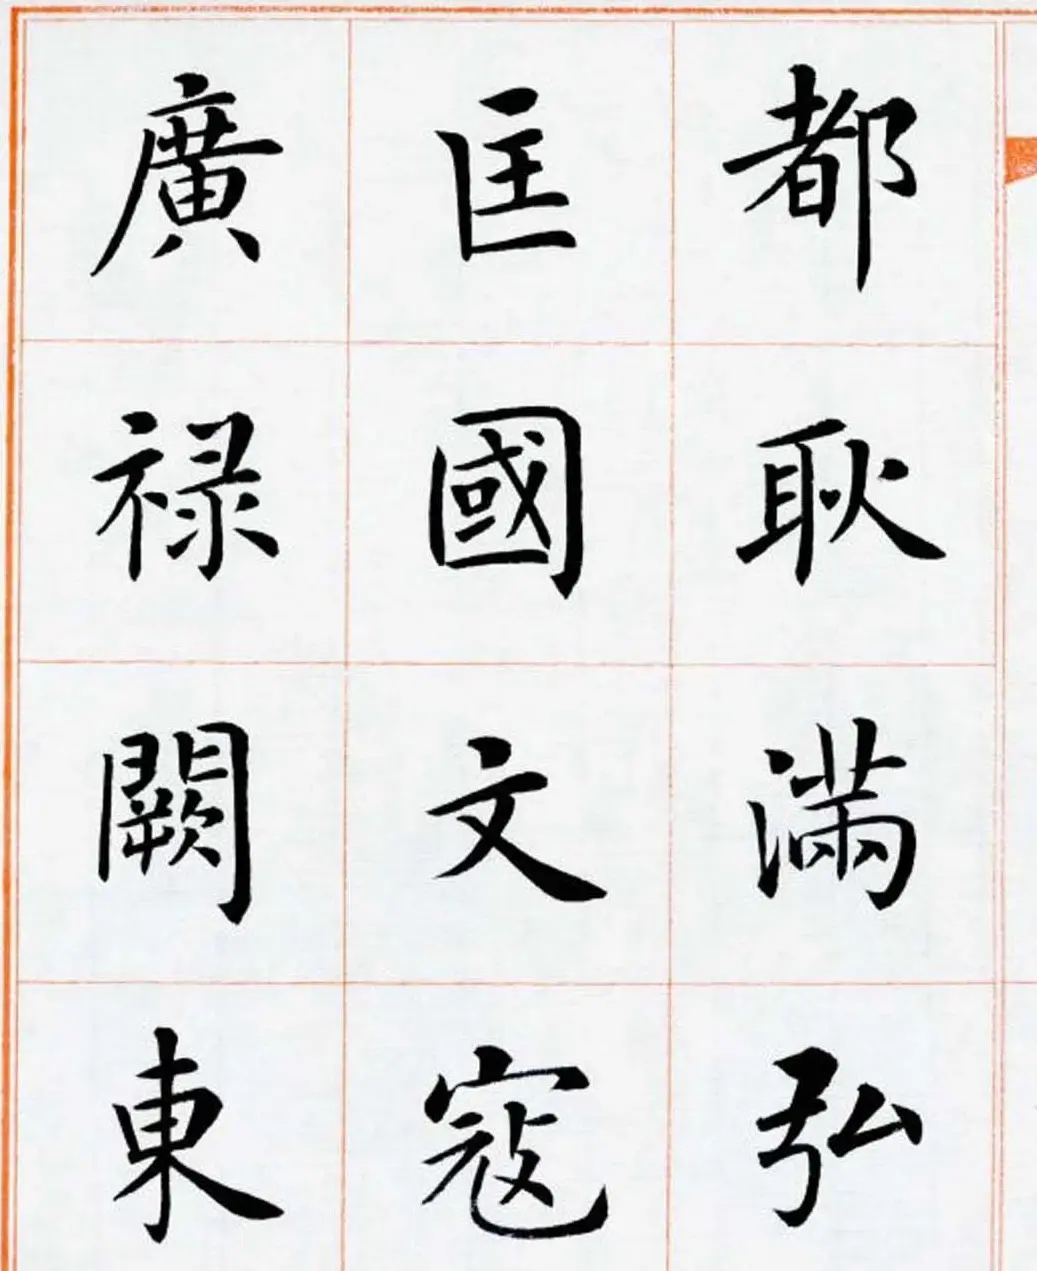 都耿滿弘
匡國文寇
廣禄闕東